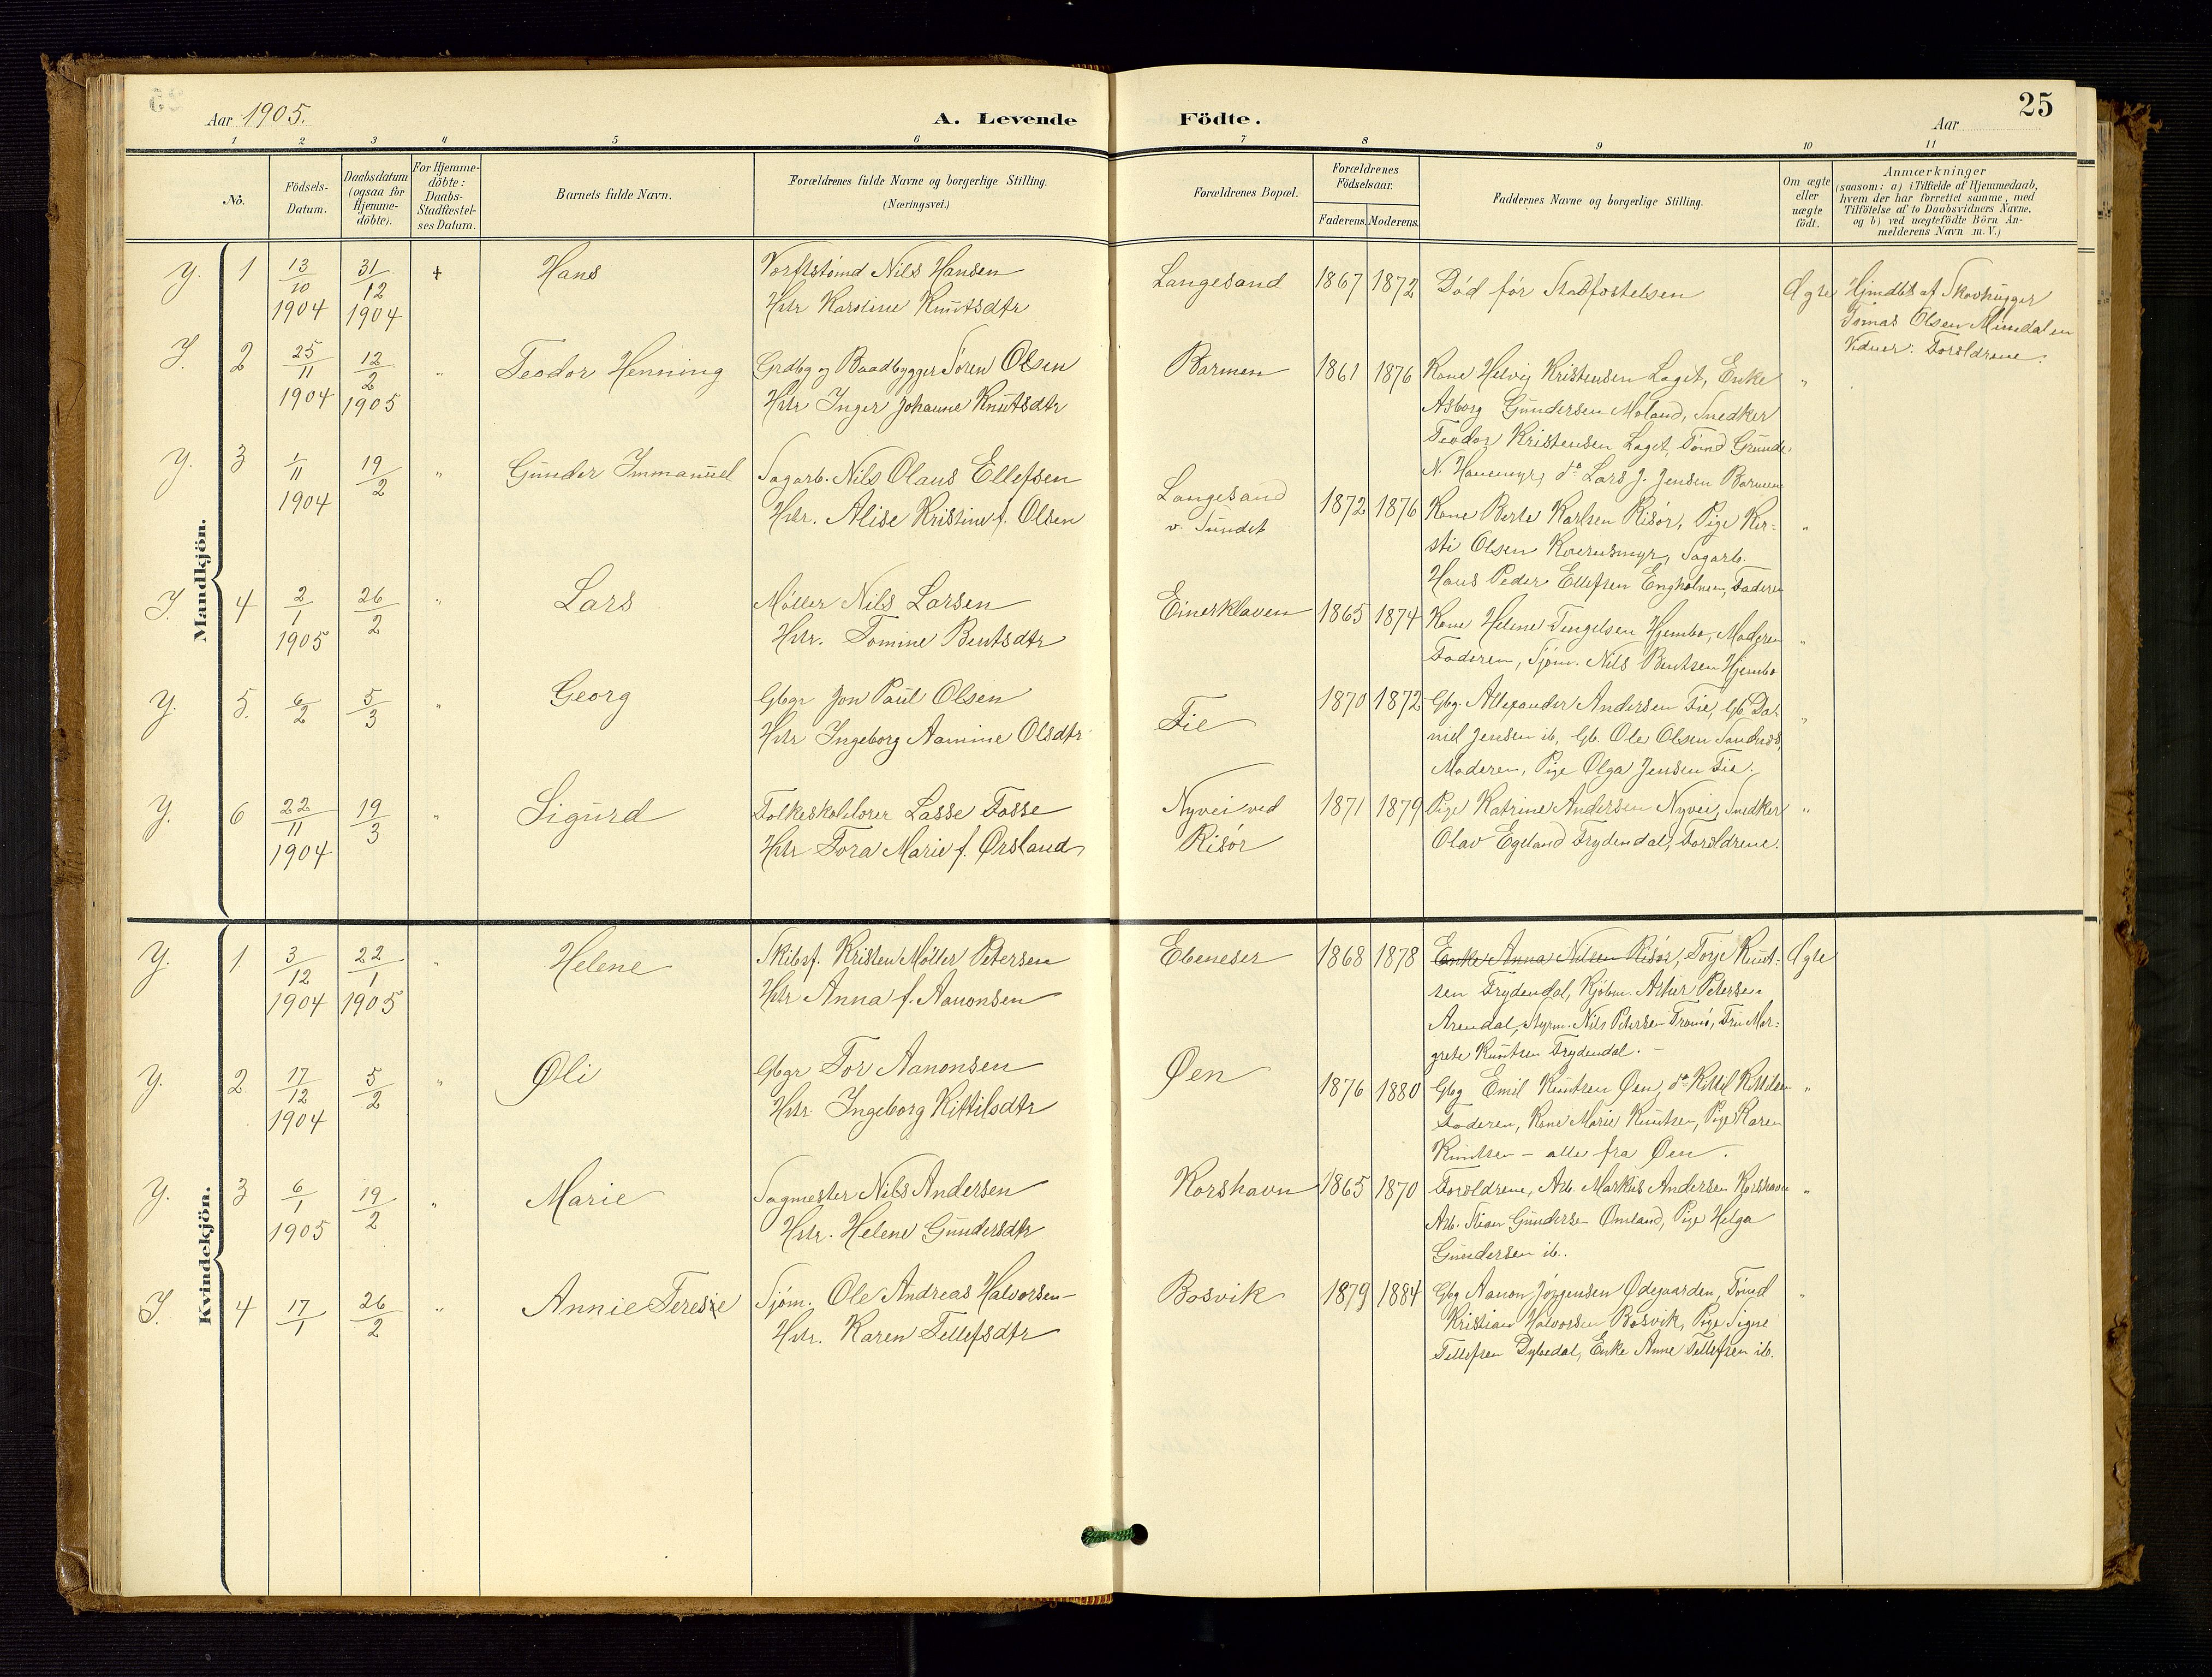 25
Aar 1905.
A. Levende Födte.
Aar
1 2 3 4 5 6 7 8 9 10 11
No.
Födsels-
Datum.
Daabsdatum
(ogsaa for
Hjemme-
döbte).
For Hjemme-
döbte:
Daabs-
Stadfæstel-
ses Datum.
Barnets fulde Navn.
Forældrenes fulde Navne og borgerlige Stilling.
(Næringsvei.)
Forældrenes Bopæl.
Forældrenes
Födselsaar.
Faderens. Moderens.
Faddernes Navne og borgerlige Stilling.
Om ægte
eller
uægte
födt.
Anmærkninger
(saasom: a) i Tilfælde af Hjemmedaab,
hvem der har forrettet samme, med
Tilföielse af to Daabsvidners Navne,
og b) ved uægtefödte Börn An-
melderens Navn m. V.)
Mandkjön.
Y. 1 13/10 1904 31/12 1904 + Hans
Nils Hansen
Hstr Karoline Knutsdtr
Langesand 1867 1872 Död før Stadfæstelsen Ægte
Hjmdbt af Skovhugger
Tomas Olsen
Vidner: Forældrene.
Y. 2 25/11 1904 12/2 1905 " Teodor Henning
Grdbg og Baadbygger Søren Olsen
Hstr Inger Johanne Knutsdtr
Barmen 1861 1876 Kone Helvig Kristensen Laget, Enke "
Asborg Gundersen Moland, Snedker
Teodor Kristensen Laget, Tømd Gunde
N. do Lars J. Jensen Barmen
Y. 3 1/11 1904 19/2 " Gunder Immanuel
Sagarb. Nils Olaus Ellefsen
Hstr. Alise Kristine f. Olsen
Langesand
v. Sundet
1872 1876 Kone Berte Karlsen Risør, Pige Ker- "
sti Olsen Sagarb.
Hans Peder Ellefsen Engholmen, Faderen
Y. 4 2/1 1905 26/2 " Lars
Møller Nils Larsen
Hstr. Tomine Bentsdtr
Einerkloven 1865 1874 Kone Helene Hjembo, Moderen "
Faderen, Sjøm. Nils Bentsen Hjembo
Y. 5. 6/2 5/3 " Georg
Gbgr Jon Paul Olsen
Hstr Ingeborg Aamine Olsdtr
Fie 1870 1872 Gbg. Allexander Andersen Fie, Gb Da- "
niel Jensen ib, Gb. Ole Olsen Sandnes,
Moderen, Pige Olga Jensen Fie.
Y. 6 22/11 1904 19/3 " Sigurd
Folkeskolelærer Lasse Fosse
Hstr Tora Marie f. Ørsland
Nyvei ved
Risør
1871 1879 Pige Katrine Andersen Nyvei, Snedker "
Olav Egeland Frydendal, Forældrene.
Kvindekjön.
Y. 1. 3/12 1904 22/1 1905 " Helene
Skibsf. Kristen Møller Petersen
Hstr Anna f. Aanonsen
Ebeneser 1868 1878 Enke Anna Nilsen Risør, Torje Knut- Ægte
sen Frydendal, Kjøbm. Petersen
Arendal, Styrm. Nils Petersen Tromø, Fru Mar-
grete Knutsen Frydendal.
Y. 2. 17/12 1904 5/2 " Øli
Gbgr Tor Aanonsen
Hstr. Ingeborg Kittilsdtr
Øen 1876 1880 Gbg Emil Knutsen Øen, do Kittil Kittilsen "
Faderen, Kone Marie Knutsen, Pige Karen
Knutsen – alle fra Øen.
Y. 3 6/1 1905 19/2 " Marie
Sagmester Nils Andersen
Hstr. Helene Gundersdtr
Korshavn 1865 1870 Forældrene, Arb. Markus Andersen Korshavn "
Arb. Gundersen Omland, Pige Helga
Gundersen ib.
Y. 4 17/1 26/2 " Annie Teresie
Sjøm. Ole Andreas Halvorsen
Hstr. Karen Tellefsdtr
Bosvik 1879 1884 Gbg Aanon Jørgensen Ødegaarden, Tømd "
Kristian Halvorsen Bosvik, Pige Signe
Tellefsen Dybedal, Enke Anne Tellefsen ib.